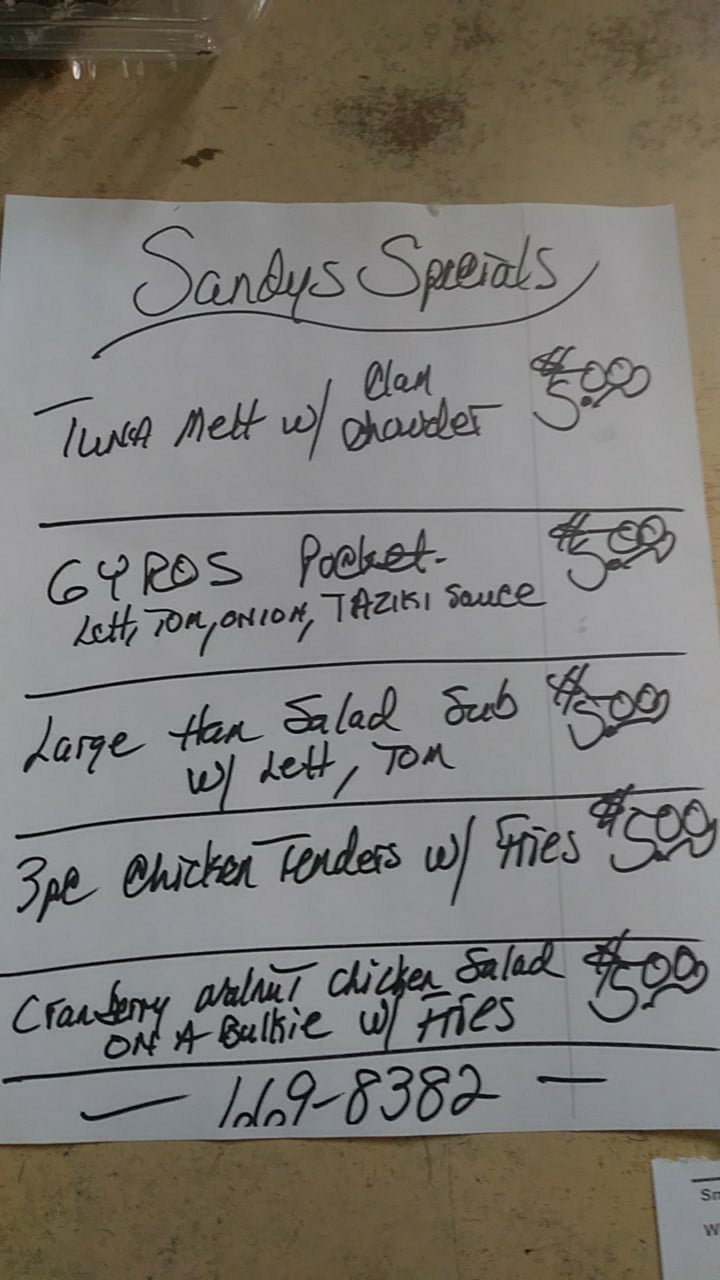 Sandys Specials
TUNA Melt w/ Clam Chowder $5.00
GYROS Pocket- $5.00
Lett, TOM, ONION, TAZIKI Sauce
Large Ham Salad Sub $5.00
w/ Lett, TOM
3pc Chicken Tenders w/ Fries $5.00
Cranberry walnut Chicken Salad $5.00
ON A Bulkie w/ Fries
— 669-8382 —